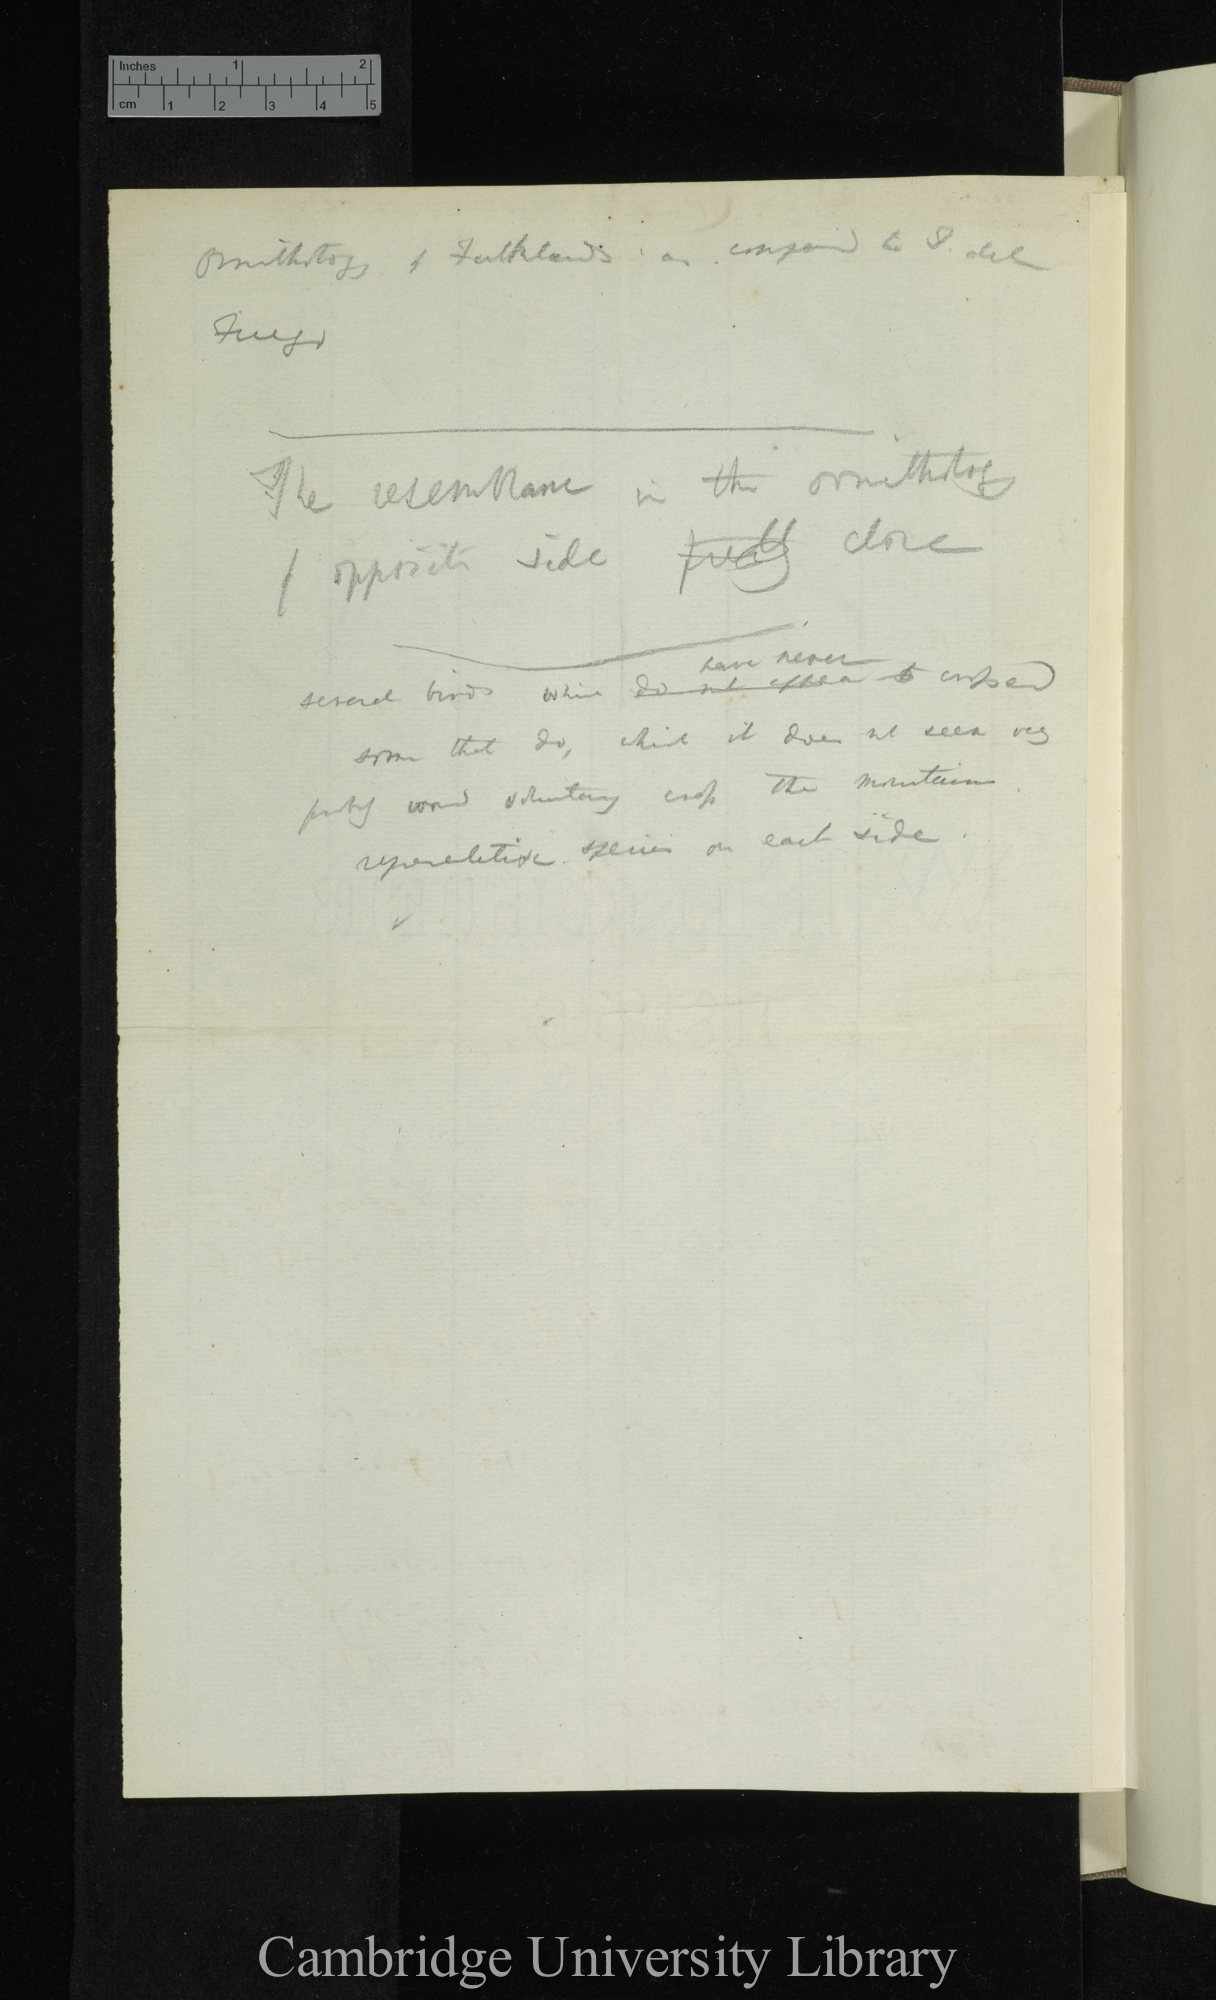 Inches 1 2
cm 1 2 3 4 5
Ornithology of Falklands as compared to T. del
Fuego
The resemblance in the ornithology
of opposite side close
have never
several birds which do not appear to crossed
some that do, which it does not seem very
voluntary cross the mountains.
representative species on each side.
Cambridge University Library